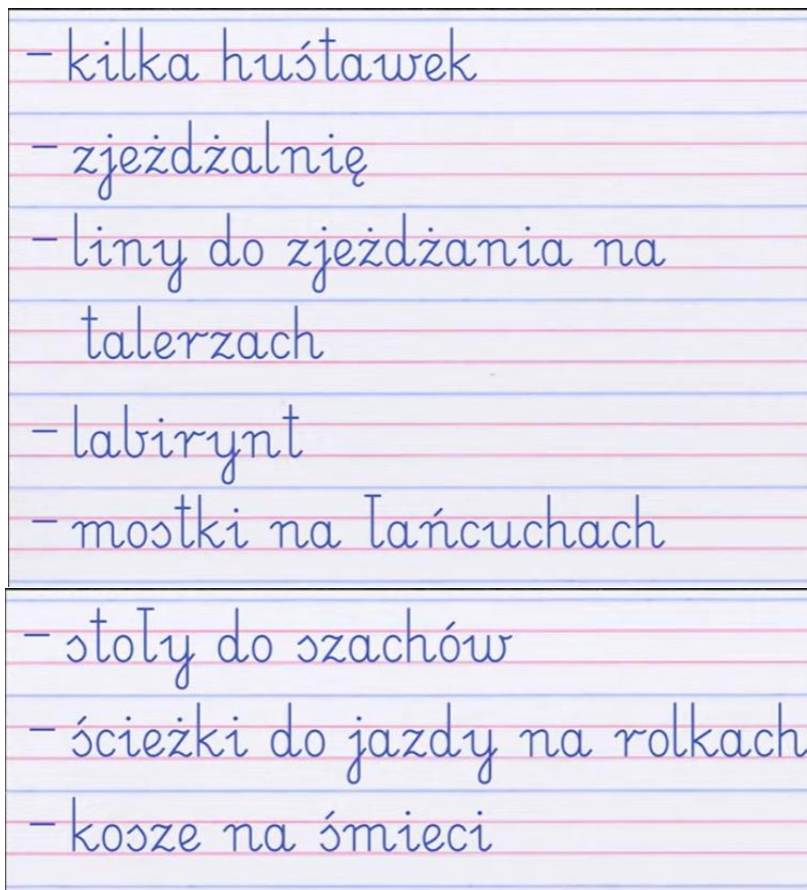 - kilka huśtawek
- zjeżdżalnię
- liny do zjeżdżania na
talerzach
- labirynt
- mostki na łańcuchach
- stoły do szachów
- ścieżki do jazdy na rolkach
- kosze na śmieci